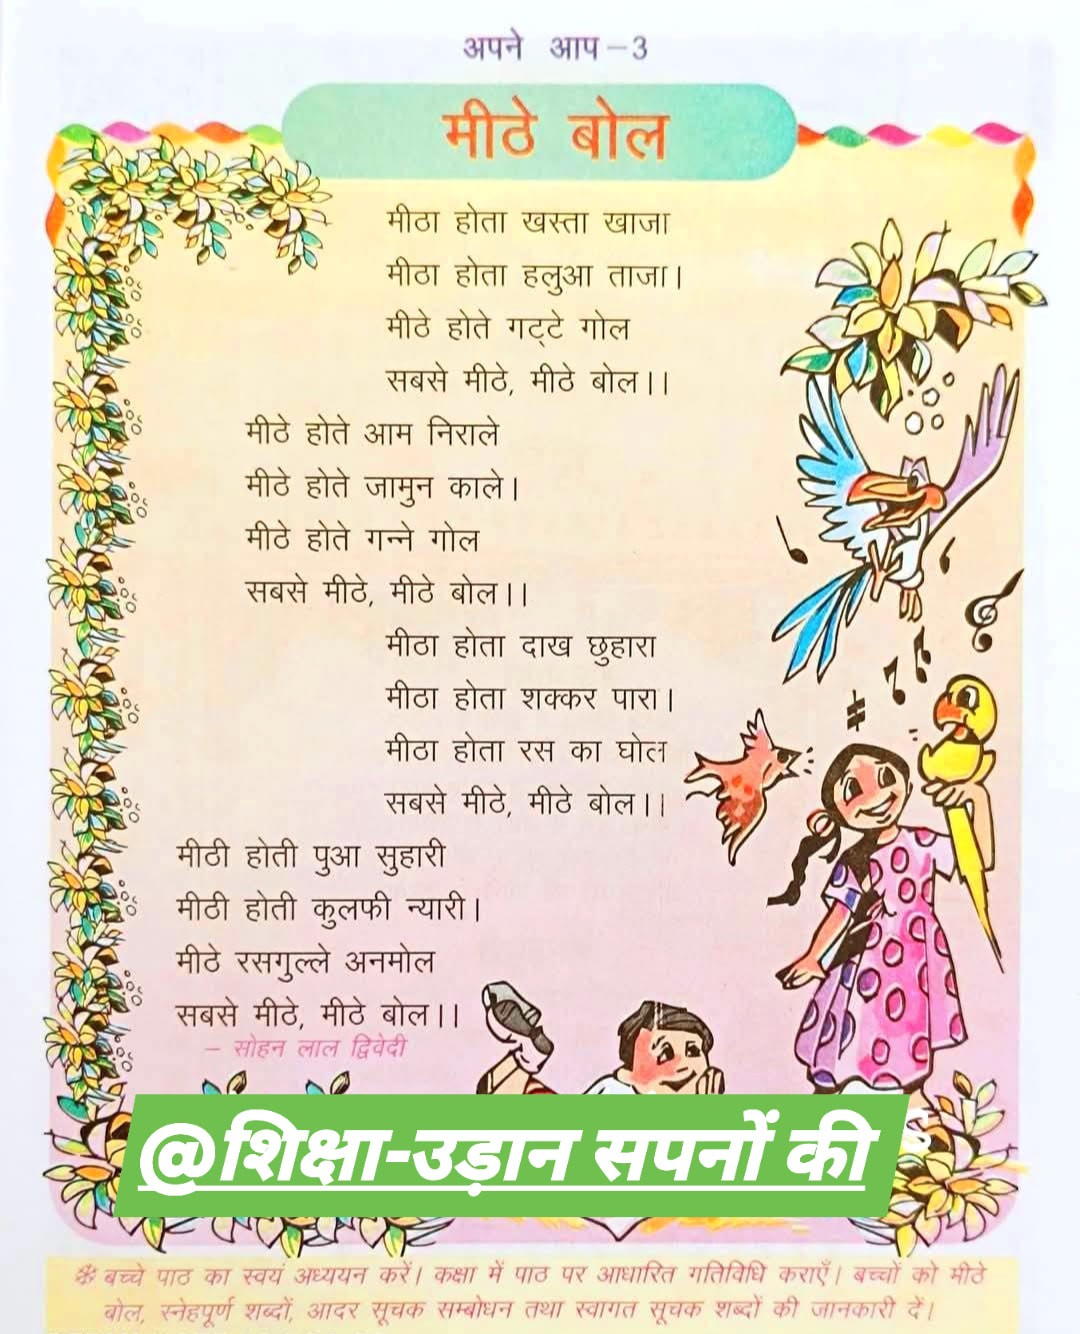 अपने आप – 3
मीठे बोल
मीठा होता खस्ता खाजा
मीठा होता हलुआ ताजा।
मीठे होते गट्टे गोल
सबसे मीठे, मीठे बोल।।
मीठे होते आम निराले
मीठे होते जामुन काले।
मीठे होते गन्ने गोल
सबसे मीठे, मीठे बोल।।
मीठा होता दाख छुहारा
मीठा होता शक्कर पारा।
मीठा होता रस का घोल
सबसे मीठे, मीठे बोल।।
मीठी होती पुआ सुहारी
मीठी होती कुलफी न्यारी।
मीठे रसगुल्ले अनमोल
सबसे मीठे, मीठे बोल।।
– सोहन लाल द्विवेदी
@शिक्षा-उड़ान सपनों की
❉ बच्चे पाठ का स्वयं अध्ययन करें। कक्षा में पाठ पर आधारित गतिविधि कराएँ। बच्चों को मीठे
बोल, स्नेहपूर्ण शब्दों, आदर सूचक सम्बोधन तथा स्वागत सूचक शब्दों की जानकारी दें।